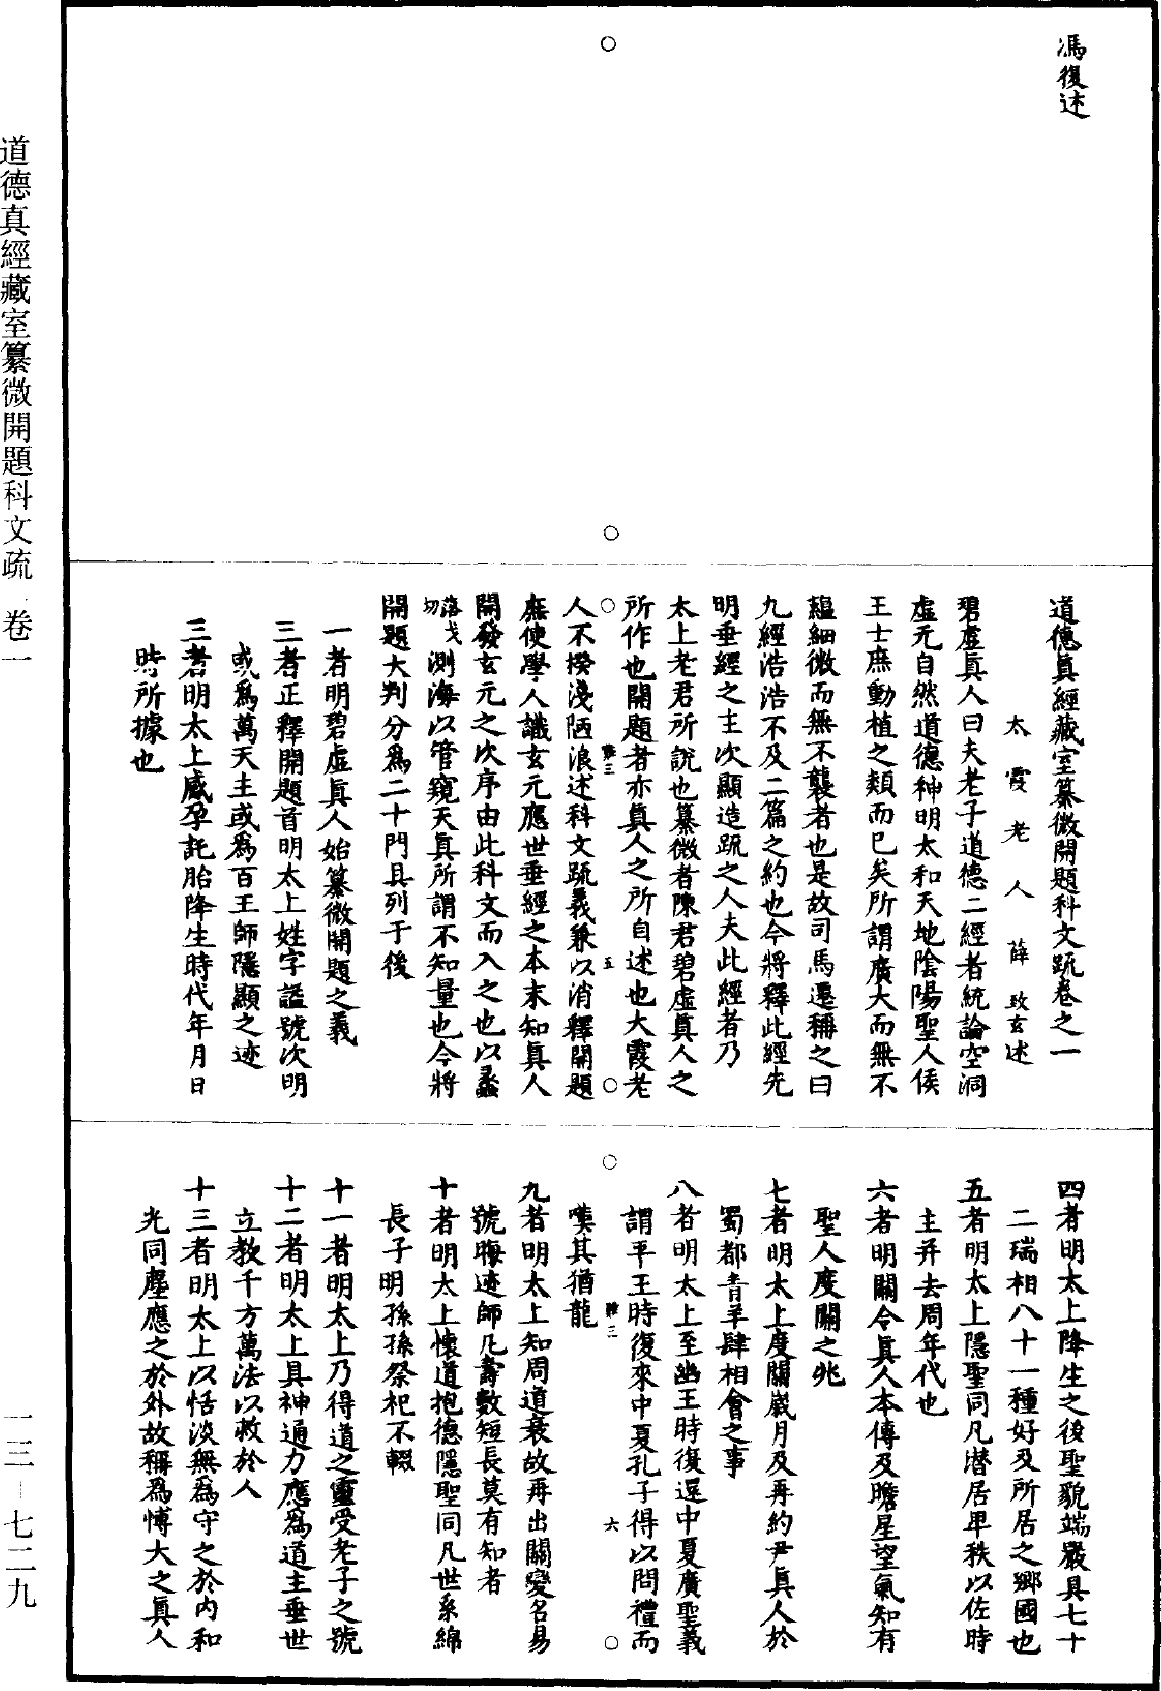 馮復述
道德眞經藏室纂微開題科文疏卷之一
太霞老人薛致玄述
碧虛眞人曰夫老子道德二經者統論空洞
虛元自然道德神明太和天地陰陽聖人侯
王士庶動植之類而已矣所謂廣大而無不
蘊細微而無不襲者也是故司馬遷稱之曰
九經浩浩不及二篇之約也今將釋此經先
明垂經之主次顯造疏之人夫此經者乃
太上老君所說也纂微者陳君碧虛眞人之
所作也開題者亦眞人之所自述也太霞老
難三 五
人不揆淺陋浪述科文疏義兼以消釋開題
庶使學人識玄元應世垂經之本末知眞人
開發玄元之次序由此科文而入之也以蠡
落戈切測海以管窺天眞所謂不知量也今將
開題大判分爲二十門具列于後
一者明碧虛眞人始纂微開題之義
二者正釋開題首明太上姓字謚號次明
或爲萬天主或爲百王師隱顯之迹
三者明太上感孕託胎降生時代年月日
時所據也
四者明太上降生之後聖貌端嚴具七十
二瑞相八十一種好及所居之鄉國也
五者明太上隱聖同凡潜居卑秩以佐時
主并去周年代也
六者明關令眞人本傳及瞻星望氣知有
聖人度關之兆
七者明太上度關歲月及再約尹眞人於
蜀都青羊肆相會之事
八者明太上至幽王時復還中夏廣聖義
謂平王時復來中夏孔子得以問禮而
難三 六
嘆其猶龍
九者明太上知周道衰故再出關變名易
號晦迹師凡壽數短長莫有知者
十者明太上懷道抱德隱聖同凡世系綿
長子明孫孫祭祀不輟
十一者明太上乃得道之靈受老子之號
十二者明太上具神通力應爲道主垂世
立教千方萬法以救於人
十三者明太上以恬淡無爲守之於內和
光同塵應之於外故稱爲博大之眞人
道德真經藏室纂微開題科文疏 卷一
一三–七二九